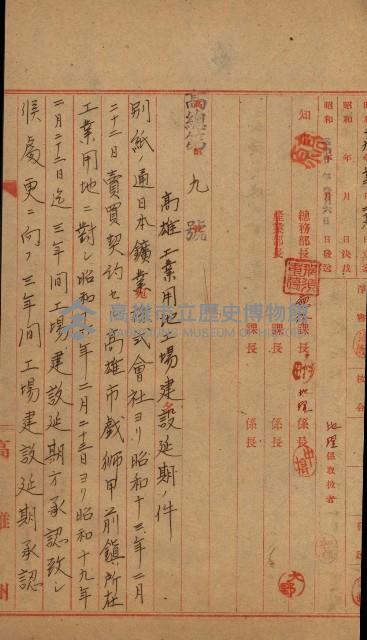 昭和 年 月 日決裁
昭和 年 月 日發送
知事
總務部長
產業部長
課長
課長
係長
係長
地理係取扱者
高總第九號
高雄工業用地工場建設延期ノ件
別紙ノ通日本鑛業株式會社ヨリ昭和十三年二月
二十二日賣買契約セル高雄市戲獅甲前鎮所在
工業用地ニ對シ昭和 年二月二十三日ヨリ昭和十九年
二月二十二日迄三年間工場建設延期方承認致シ
候處更ニ向フ三年間工場建設延期承認
高雄州
高雄市立歷史博物館
KAOHSIUNG MUSEUM OF HISTORY